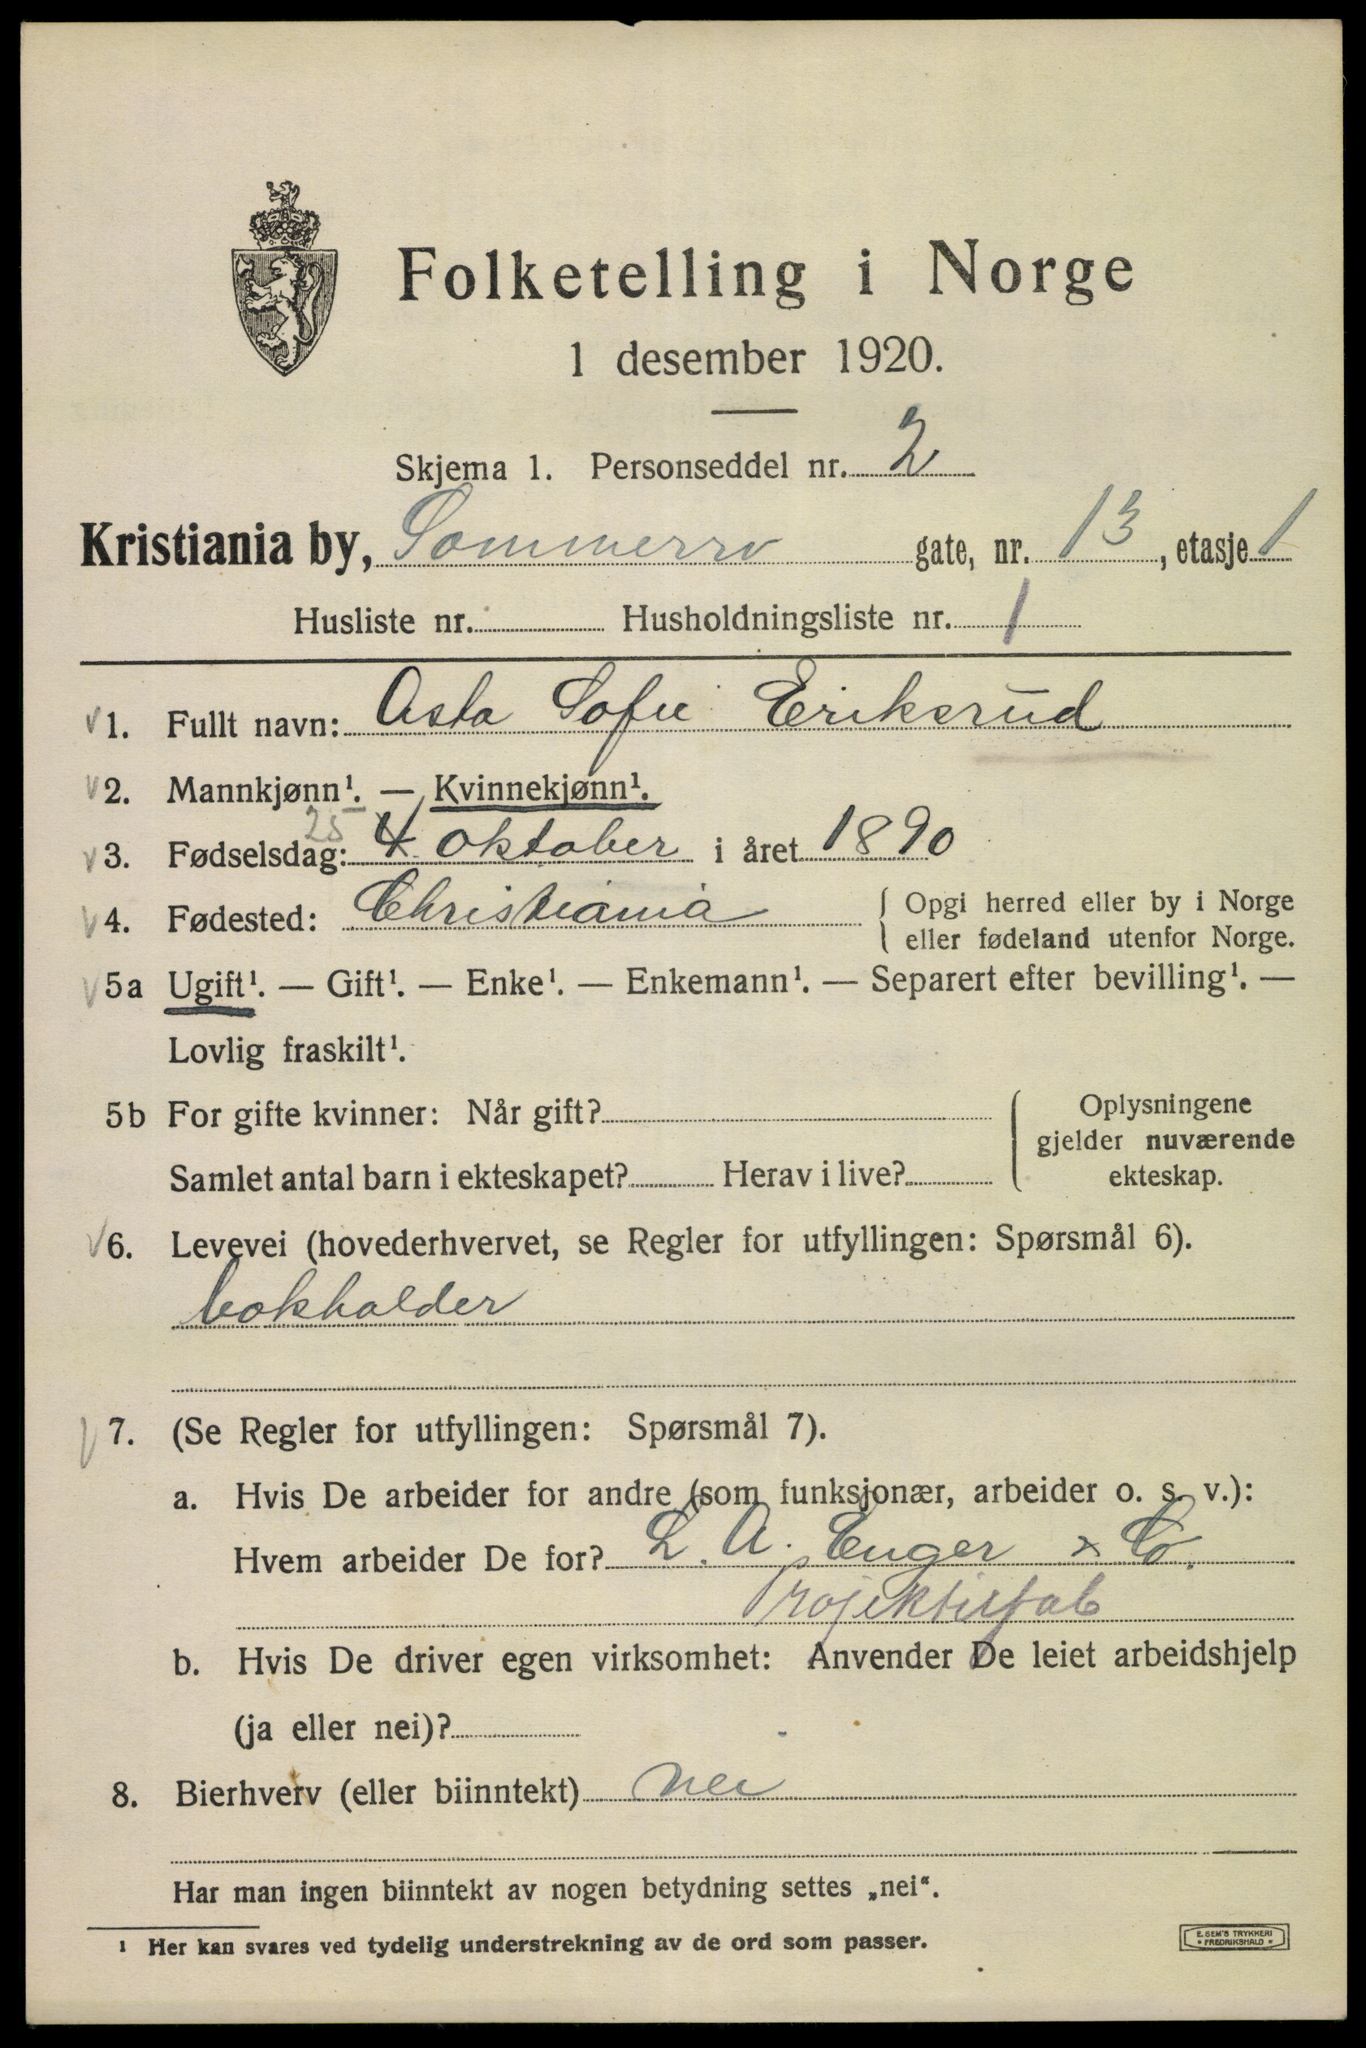 Folketelling i Norge
1 desember 1920.
Skjema 1. Personseddel nr. 2
Kristiania by, Sommerro gate, nr. 13, etasje 1
Husliste nr. Husholdningsliste nr. 1
v 1. Fullt navn: Asta Sofie Eriksrud
v 2. Mannkjønn¹. — Kvinnekjønn¹.
25
v 3. Fødselsdag: 4 oktober i året 1890
v 4. Fødested: Christiania { Opgi herred eller by i Norge
eller fødeland utenfor Norge.
v 5a Ugift¹. — Gift¹. — Enke¹. — Enkemann¹. — Separert efter bevilling¹. —
Lovlig fraskilt¹.
5b For gifte kvinner: Når gift? { Oplysningene
gjelder nuværende
Samlet antal barn i ekteskapet? Herav i live? ekteskap.
v 6. Levevei (hovederhvervet, se Regler for utfyllingen: Spørsmål 6).
bokholder
v 7. (Se Regler for utfyllingen: Spørsmål 7).
a. Hvis De arbeider for andre (som funksjonær, arbeider o. s. v.):
Hvem arbeider De for? L. A. Enger & Co.
Projektilfab
b. Hvis De driver egen virksomhet: Anvender De leiet arbeidshjelp
(ja eller nei)?
8. Bierhverv (eller biinntekt) nei
Har man ingen biinntekt av nogen betydning settes „nei“.
¹ Her kan svares ved tydelig understrekning av de ord som passer.
E. SEM'S TRYKKERI
* FREDRIKSHALD *